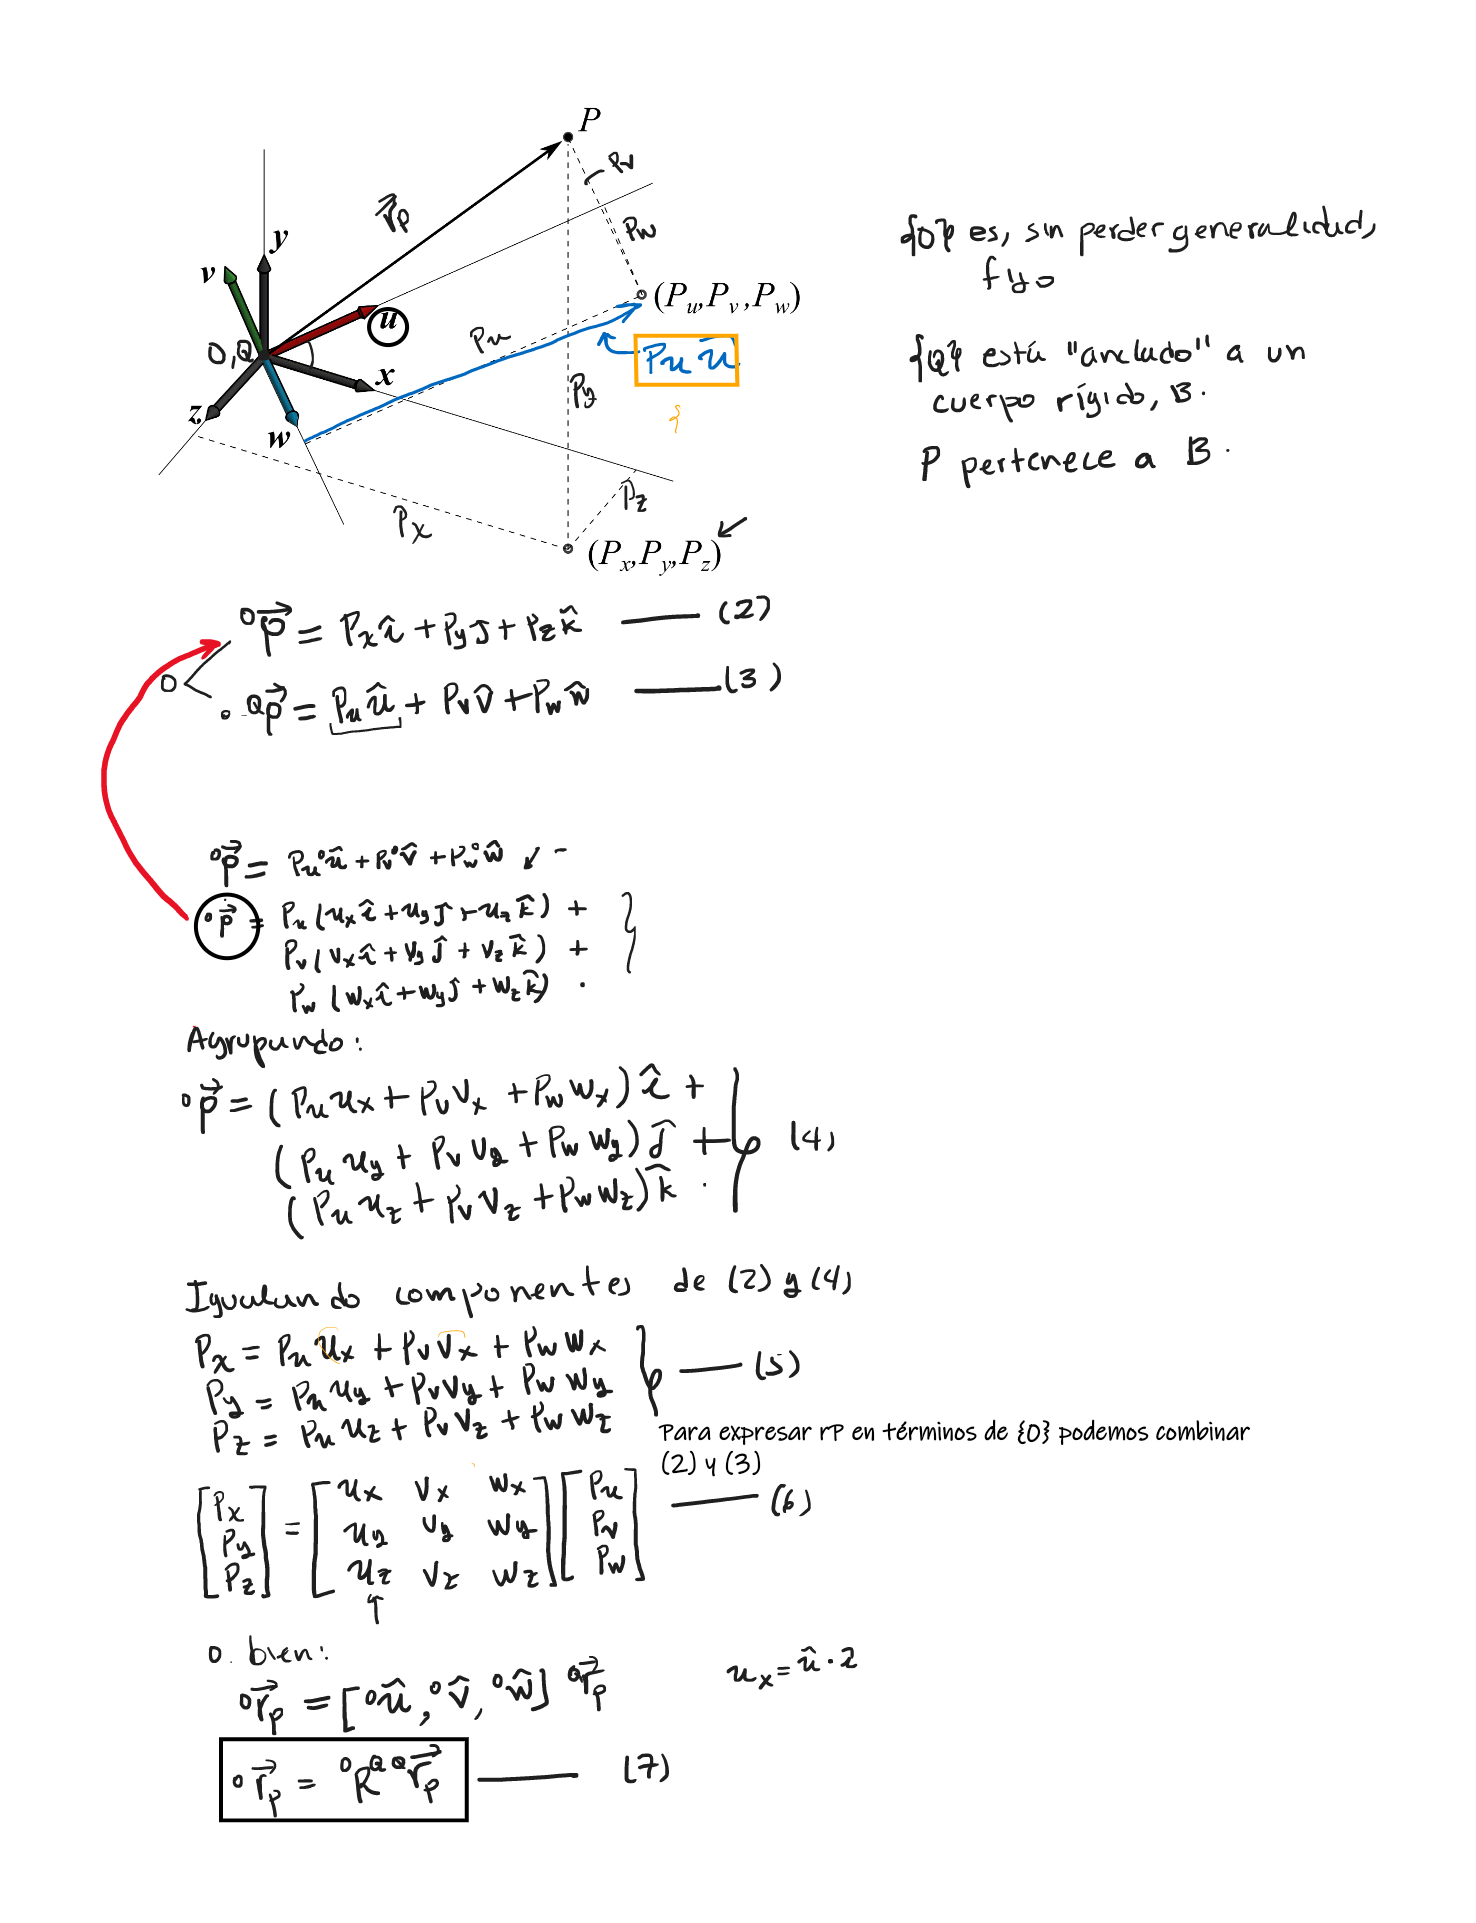 P
Pv
r⃗p
Pw
y
v
(Pu,Pv,Pw)
u
O,Q
Pu
Pu û
x
Py
z
w
Pz
Px
(Px,Py,Pz)
{O} es, sin perder generalidad,
fijo
{Q} está "anclado" a un
cuerpo rígido, B.
P pertenece a B.
⁰p⃗ = Px î + Py ĵ + Pz k̂ —— (2)
O
Qp⃗ = Pu û + Pv v̂ + Pw ŵ —— (3)
⁰p⃗ = Pu ⁰û + Pv ⁰v̂ + Pw ⁰ŵ
⁰p⃗ = Pu (ux î + uy ĵ + uz k̂) +
Pv (vx î + vy ĵ + vz k̂) +
Pw (wx î + wy ĵ + wz k̂) .
Agrupando:
⁰p⃗ = (Pu ux + Pv vx + Pw wx) î +
(Pu uy + Pv vy + Pw wy) ĵ + (4)
(Pu uz + Pv vz + Pw wz) k̂ .
Igualando componentes de (2) y (4)
Px = Pu ux + Pv vx + Pw wx
Py = Pu uy + Pv vy + Pw wy —— (5)
Pz = Pu uz + Pv vz + Pw wz
Para expresar rP en términos de {0} podemos combinar
(2) y (3)
[Px] = [ux vx wx] [Pu]
[Py] [uy vy wy] [Pv] —— (6)
[Pz] [uz vz wz] [Pw]
O bien:
⁰r⃗p = [⁰û, ⁰v̂, ⁰ŵ] Qr⃗p
ux = û · î
⁰r⃗p = ⁰R^Q Qr⃗p —— (7)